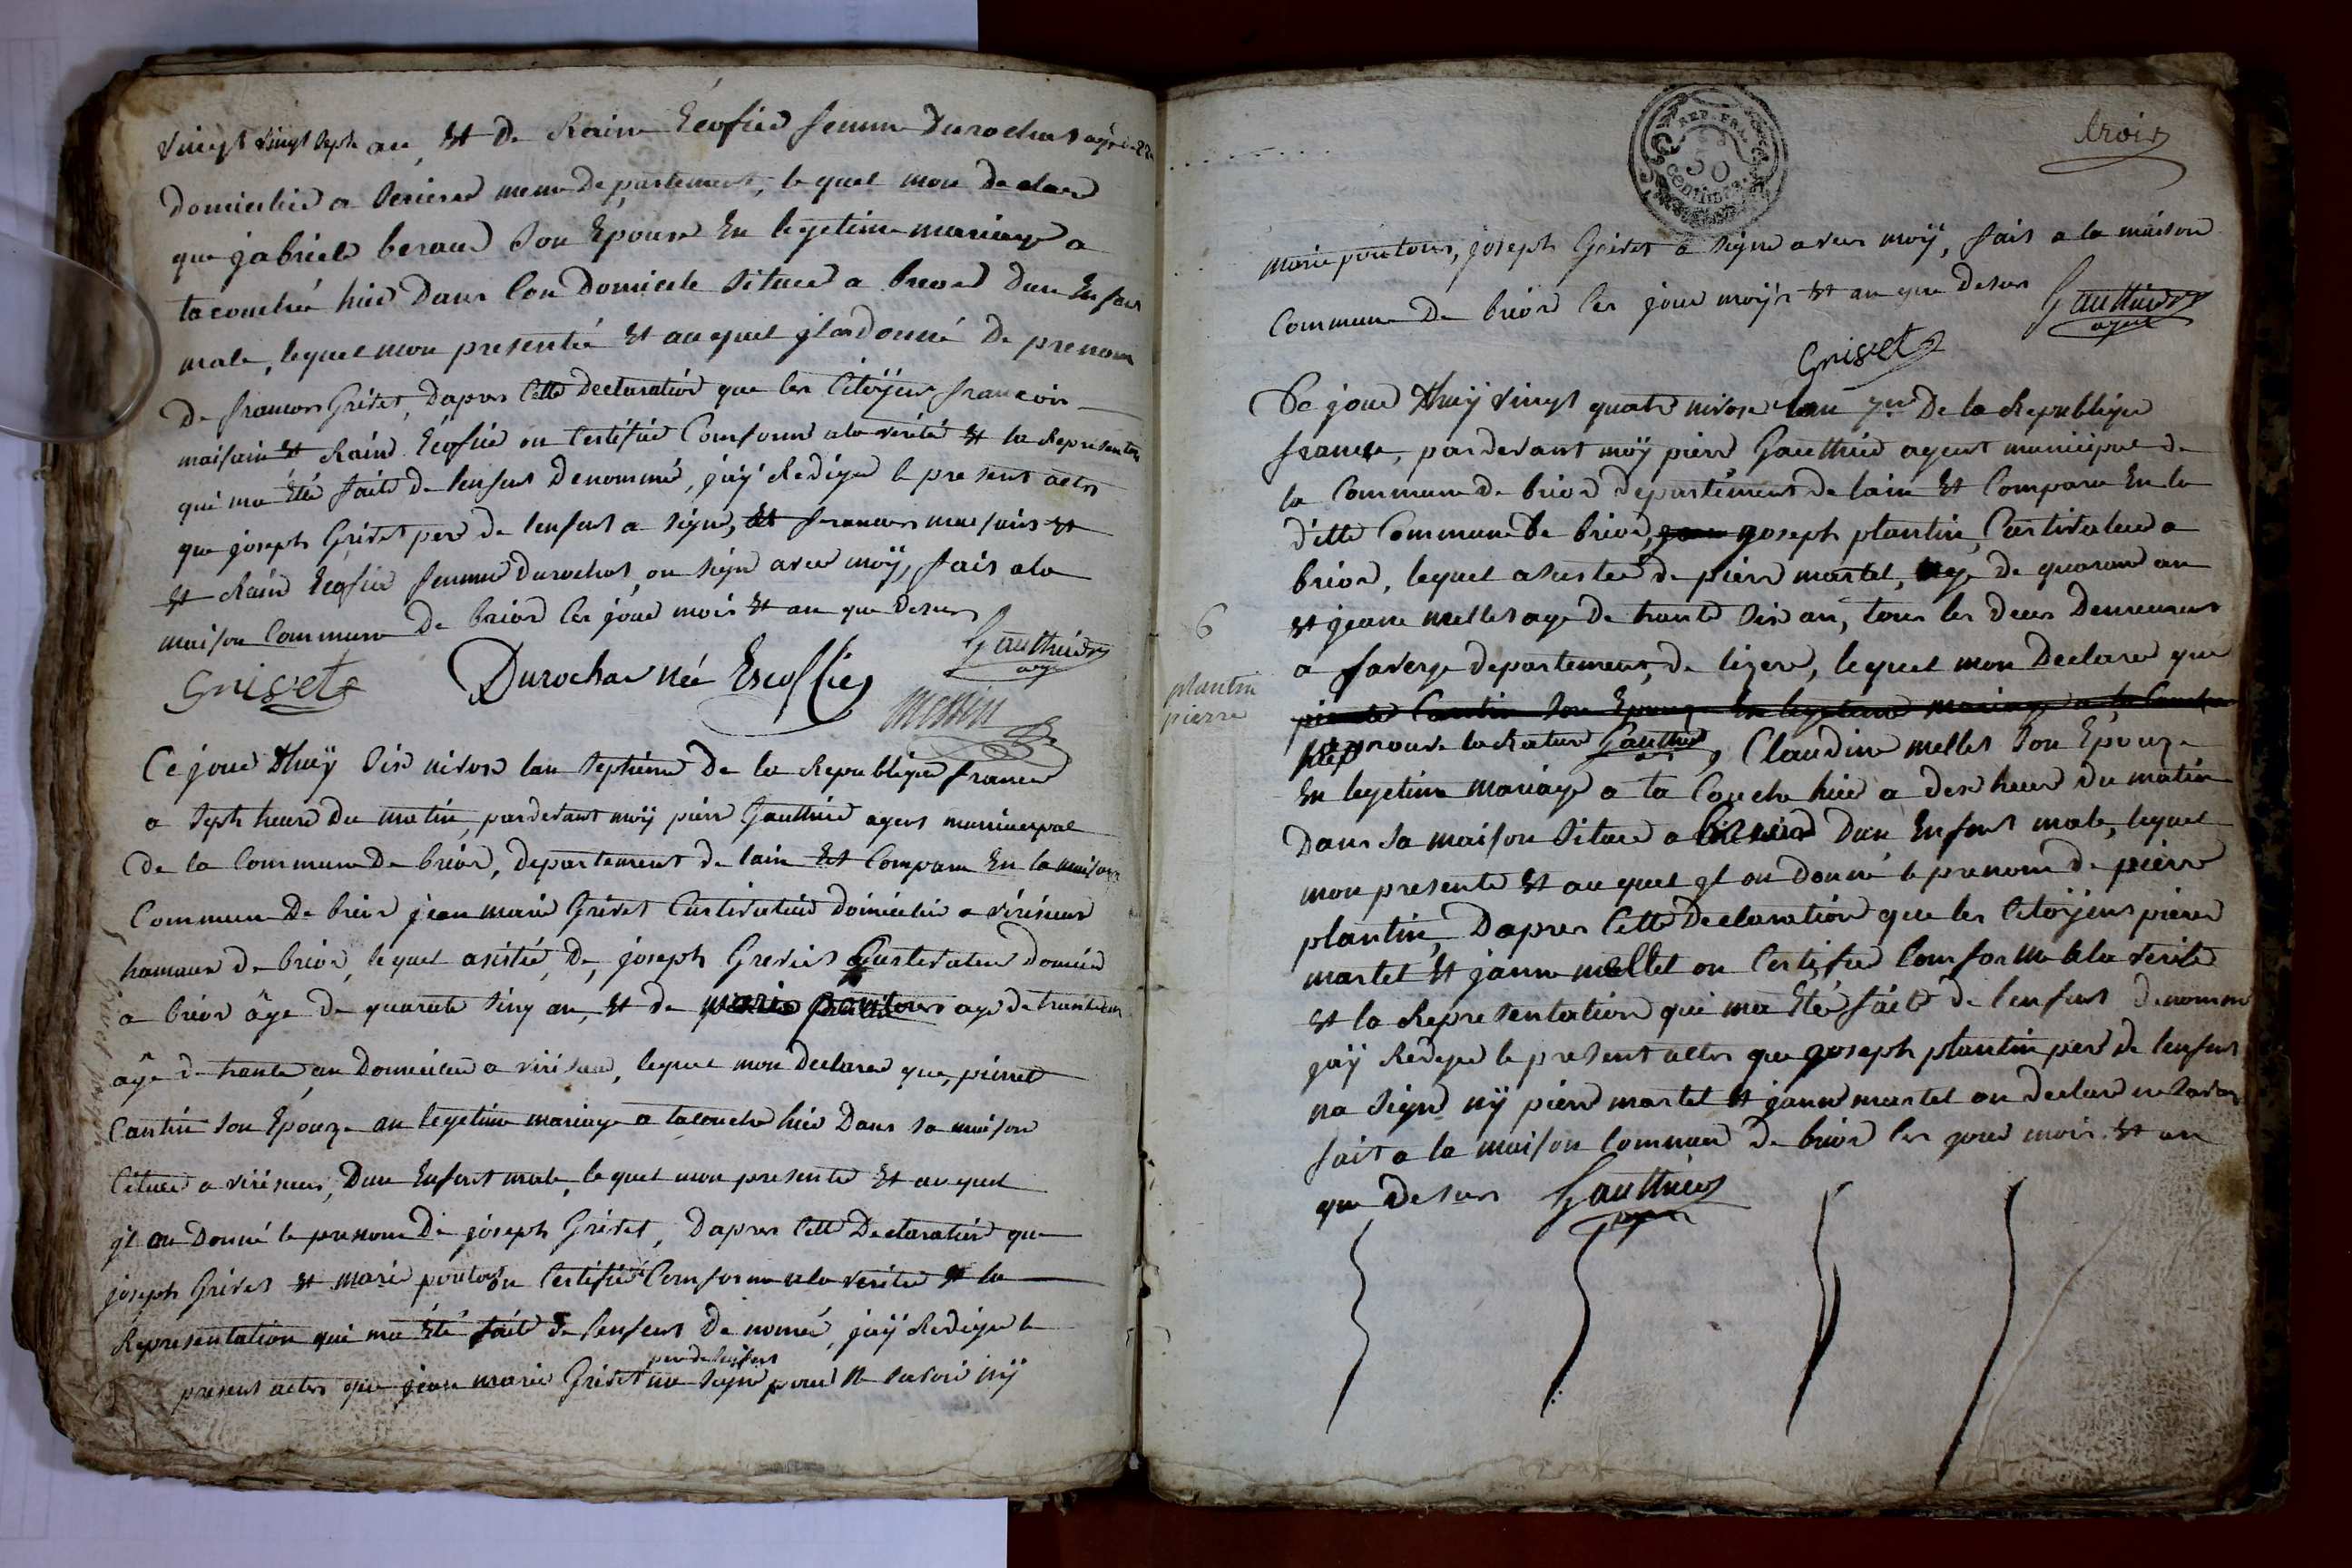 vingt vingt Sept an, Et De Reine Ecofier femme Durochat agé de 22
Domicilié a Serieres meme Departement, le quel mon Declare
que gabriele beraud Son Epouse En legetime mariage a
tacouchée hier Dans Son Domicile Situé a briord Dun Enfant
male, lequel mon presenté Et au quel il on donné De prenom
De francois Grivet, Dapres Cette Declaration que les Citoyens francois
maisain Et Reine Ecofier on Certifier Conforme a la verité Et la Representation
qui ma été faite De lenfant Denommé, jáÿ Redigé le present actes
que joseph Grivet pere De lenfant a Signé, Et francois maisain Et
Et Reine Ecofier femme Durochat, on Signe avec moÿ, fait a la
maison Commune De briord les jour mois Et an que Desus
Grivet Durochat née Escoffier Gauthier
agent
Ce jour Dhuÿ Six nivose lan Septieme De la Republique france
a Sept heure Du matin, pardevant moÿ pierre Gauthier agent municipal
De la Commune De briord, Departement De lain Et Compare En la maison
Commune De briord jean marie Grivet Cultivateur Domicilié a vérisieux
hameaux De briord, le quel asisté, De, joseph Grevet Cultivateur Domicié
a briord âge De quarante Sinq an, Et De marie pontous age De trante un
âge De trante an Domicilié a verisieux, lequel mon Declaré que, pierret
Cantin Son Epouze an legetime mariage a tacouche hier Dans Sa maison
Cituer a verisieux, Dun Enfant male, le quel mon presenté Et auquel
il on Donné le prenom De joseph Grivet, Dapres Cette Declaration que
joseph Grivet Et marie pontous on Certifier Conforme a la verité Et la
Representation qui ma été faite De lenfant Denomé, jaÿ Redigé le
pere de lenfant
present actes que jean marie Grivet na Signé pour ne Savoir nÿ
REP. FRA.
50
centimes
trois
marie pontous, joseph Grivet a Signe avec moÿ, fait a la maison
Commune De briord les jour moÿs Et an que Desus
Gauthier
agent
Grivet
Ce jour Dhuÿ vingt quatre nivose lan 7me De la Republique
francse, pardevant moÿ pierre Gauthier agent municipal De
la Commune De briord departement de lain Et Compare En la
ditte Commune De briord, joseph plantin, Cultivateur a
briord, lequel asisté De pierre martel, age De quarante an
6
Et jeane mellet age De trante Six an, tous les Deux Demeurant
a faverge departement, De lizere, lequel mon Declare que
plantin
pierre
pierrete Cantin Son Epouze En legetime mariage a ta Couche
aprouve la Rature Gauthier, Claudine mellet Son Epouze
En legetime mariage a ta Couche hier a dex heure Du matin
Dans Sa maison Situé a briord Dun Enfant male, lequel
mon presenté Et au quel il on Donné le prenom De pierre
plantin, Dapres Cette Declaration que les Citoyens pierre
martel Et janne mellet on Certifié Conforme a la verité
Et la Representation qui ma été faite De lenfant Denomme
jaÿ Redigé le present actes que joseph plantin pere De lenfant
na Signé nÿ pierre martel Et janne martel on declaré ne Savoir
fait a la maison Commune De briord les jour mois Et an
que Desus Gauthier
agent